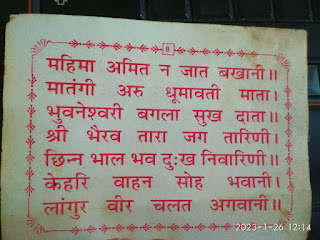 8
महिमा अमित न जात बखानी॥
मातंगी अरु धूमावती माता।
भुवनेश्वरी बगला सुख दाता॥
श्री भैरव तारा जग तारिणी।
छिन्न भाल भव दुःख निवारिणी॥
केहरि वाहन सोह भवानी।
लांगुर वीर चलत अगवानी॥
2023-1-26 12:14